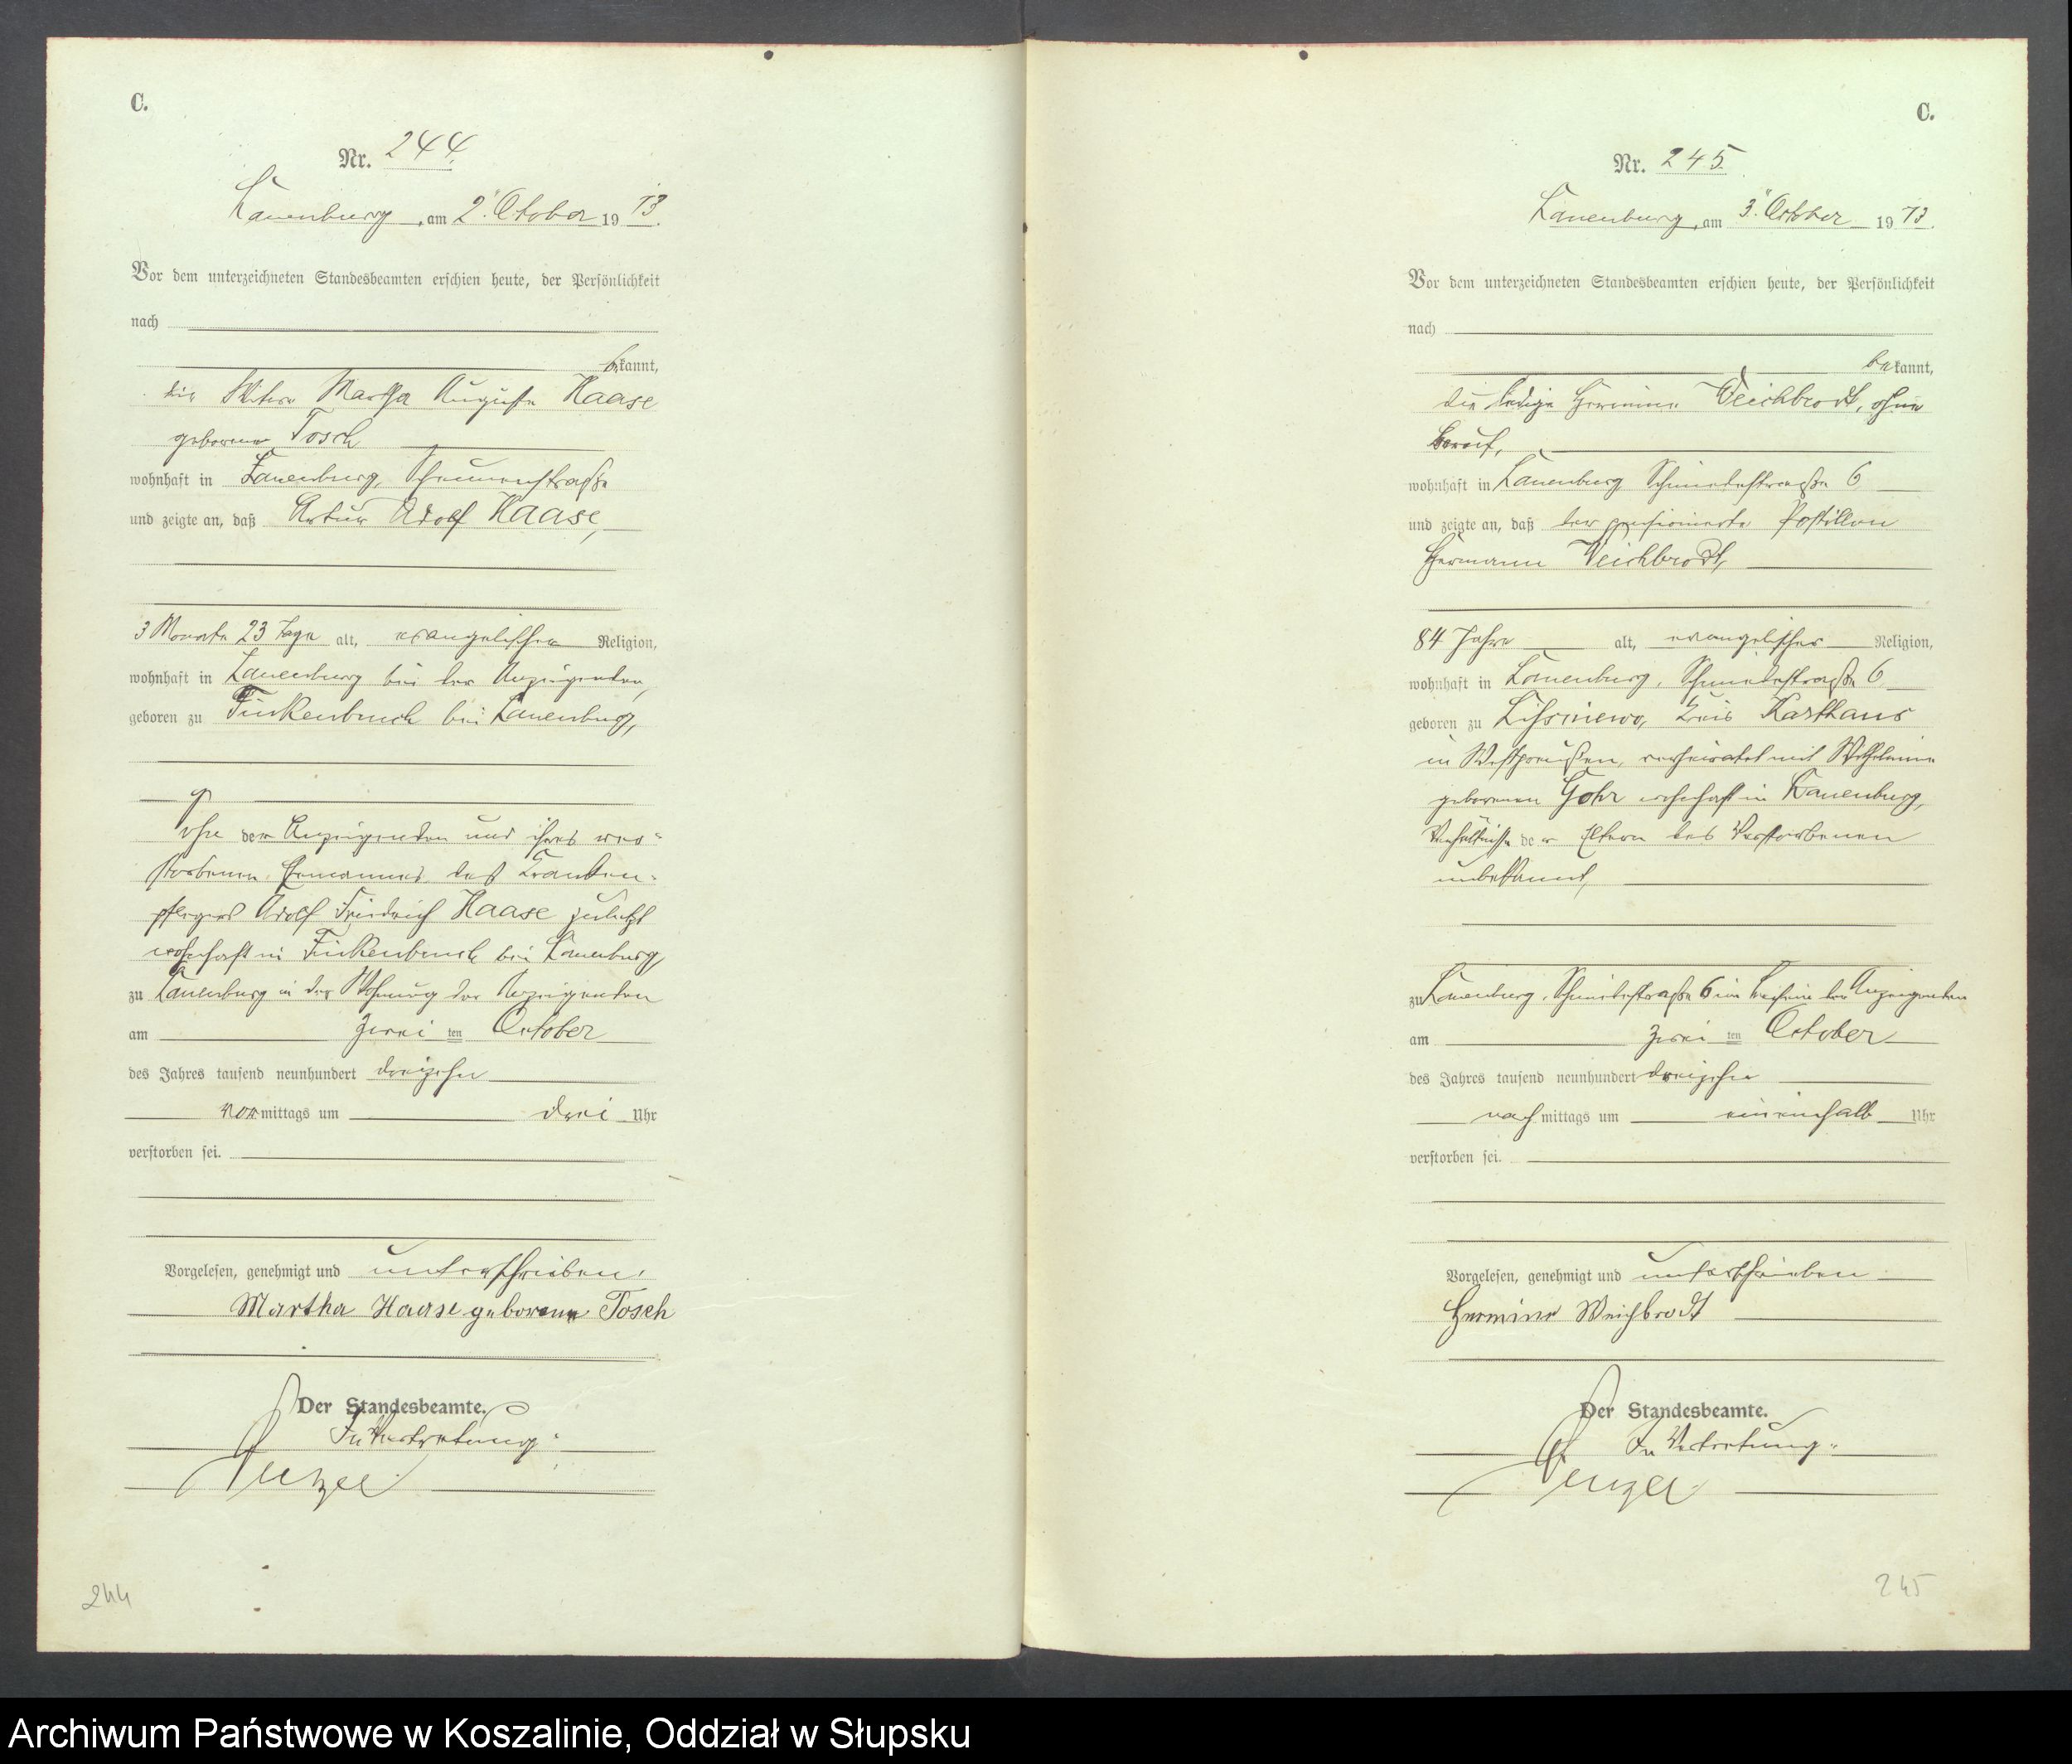 C.
Nr. 244.
Lauenburg, am 2. October 1913.
Vor dem unterzeichneten Standesbeamten erschien heute, der Persönlichkeit
nach
bekannt,
die Witwe Martha Auguste Haase
geborene Tosch
wohnhaft in Lauenburg, Scheunenstraße
und zeigte an, daß Artur Adolf Haase,
3 Monate 23 Tage alt, evangelischer Religion,
wohnhaft in Lauenburg bei der Anzeigenden,
geboren zu Finkenbruch bei Lauenburg,
Sohn der Anzeigenden und ihres ver-
storbenen Ehemannes des Kranken-
pflegers Adolf Friedrich Haase zuletzt
wohnhaft in Finkenbruch bei Lauenburg,
zu Lauenburg in der Wohnung der Anzeigenden
am zwei ten October
des Jahres tausend neunhundert dreizehn
vormittags um drei Uhr
verstorben sei.
Vorgelesen, genehmigt und unterschrieben.
Martha Haase geborene Tosch
Der Standesbeamte.
In Vertretung.
Penzel
244
C.
Nr. 245.
Lauenburg, am 3. October 1913.
Vor dem unterzeichneten Standesbeamten erschien heute, der Persönlichkeit
nach
bekannt,
die ledige Hermine Weichbrodt, ohne
Beruf,
wohnhaft in Lauenburg Schmiedestraße 6
und zeigte an, daß der pensionierte Postillon
Hermann Weichbrodt,
84 Jahre alt, evangelischer Religion,
wohnhaft in Lauenburg, Schmiedestraße 6
geboren zu Lissniewo, Kreis Karthaus
in Westpreußen, verheiratet mit Wilhelmine
geborenen Gohr wohnhaft in Lauenburg,
Verhältnisse der Eltern des Verstorbenen
unbekannt,
zu Lauenburg, Schmiedestraße 6 im Beisein der Anzeigenden
am zwei ten October
des Jahres tausend neunhundert dreizehn
nachmittags um eineinhalb Uhr
verstorben sei.
Vorgelesen, genehmigt und unterschrieben
Hermine Weichbrodt
Der Standesbeamte.
In Vertretung.
Penzel
245
Archiwum Państwowe w Koszalinie, Oddział w Słupsku